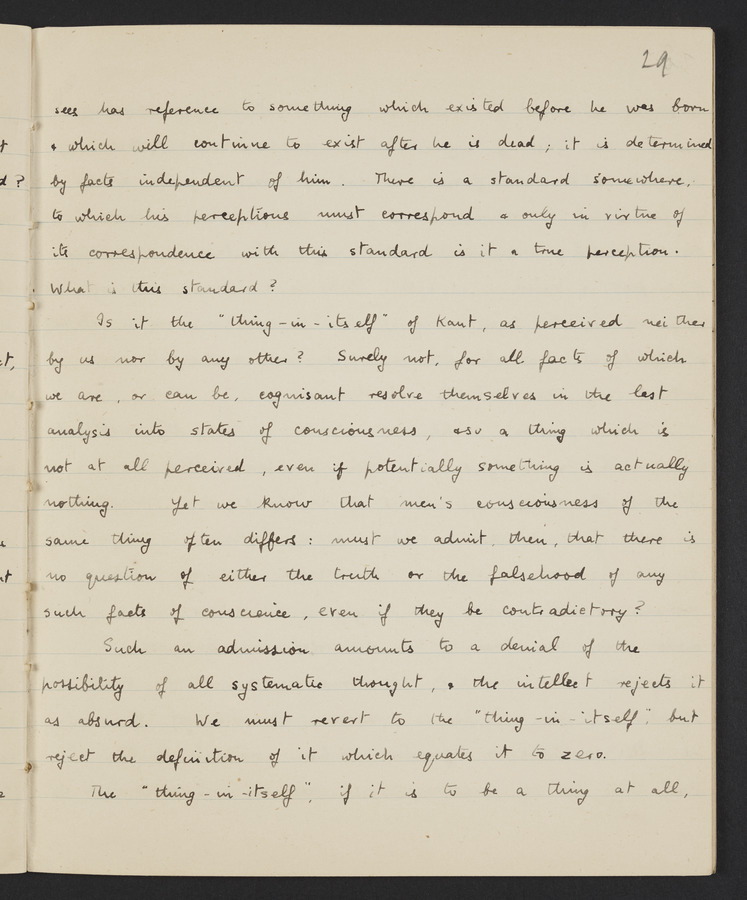 29
sees has reference to something which existed before he was born
& which will continue to exist after he is dead; it is determined
by facts independent of him. There is a standard somewhere,
to which his perceptions must correspond & only in virtue of
its correspondence with this standard is it a true perception.
What is this standard?
Is it the "thing-in-itself" of Kant, as perceived neither
by us nor by any other? Surely not, for all facts of which
we are, or can be, cognisant resolve themselves in the last
analysis into states of consciousness, & so a thing which is
not at all perceived, even if potentially something is actually
nothing. Yet we know that men's consciousness of the
same thing often differs: must we admit, then, that there is
no question of either the truth or the falsehood of any
such facts of conscience, even if they be contradictory?
Such an admission amounts to a denial of the
possibility of all systematic thought, & the intellect rejects it
as absurd. We must revert to the "thing-in-itself", but
reject the definition of it which equates it to zero.
The "thing-in-itself", if it is to be a thing at all,